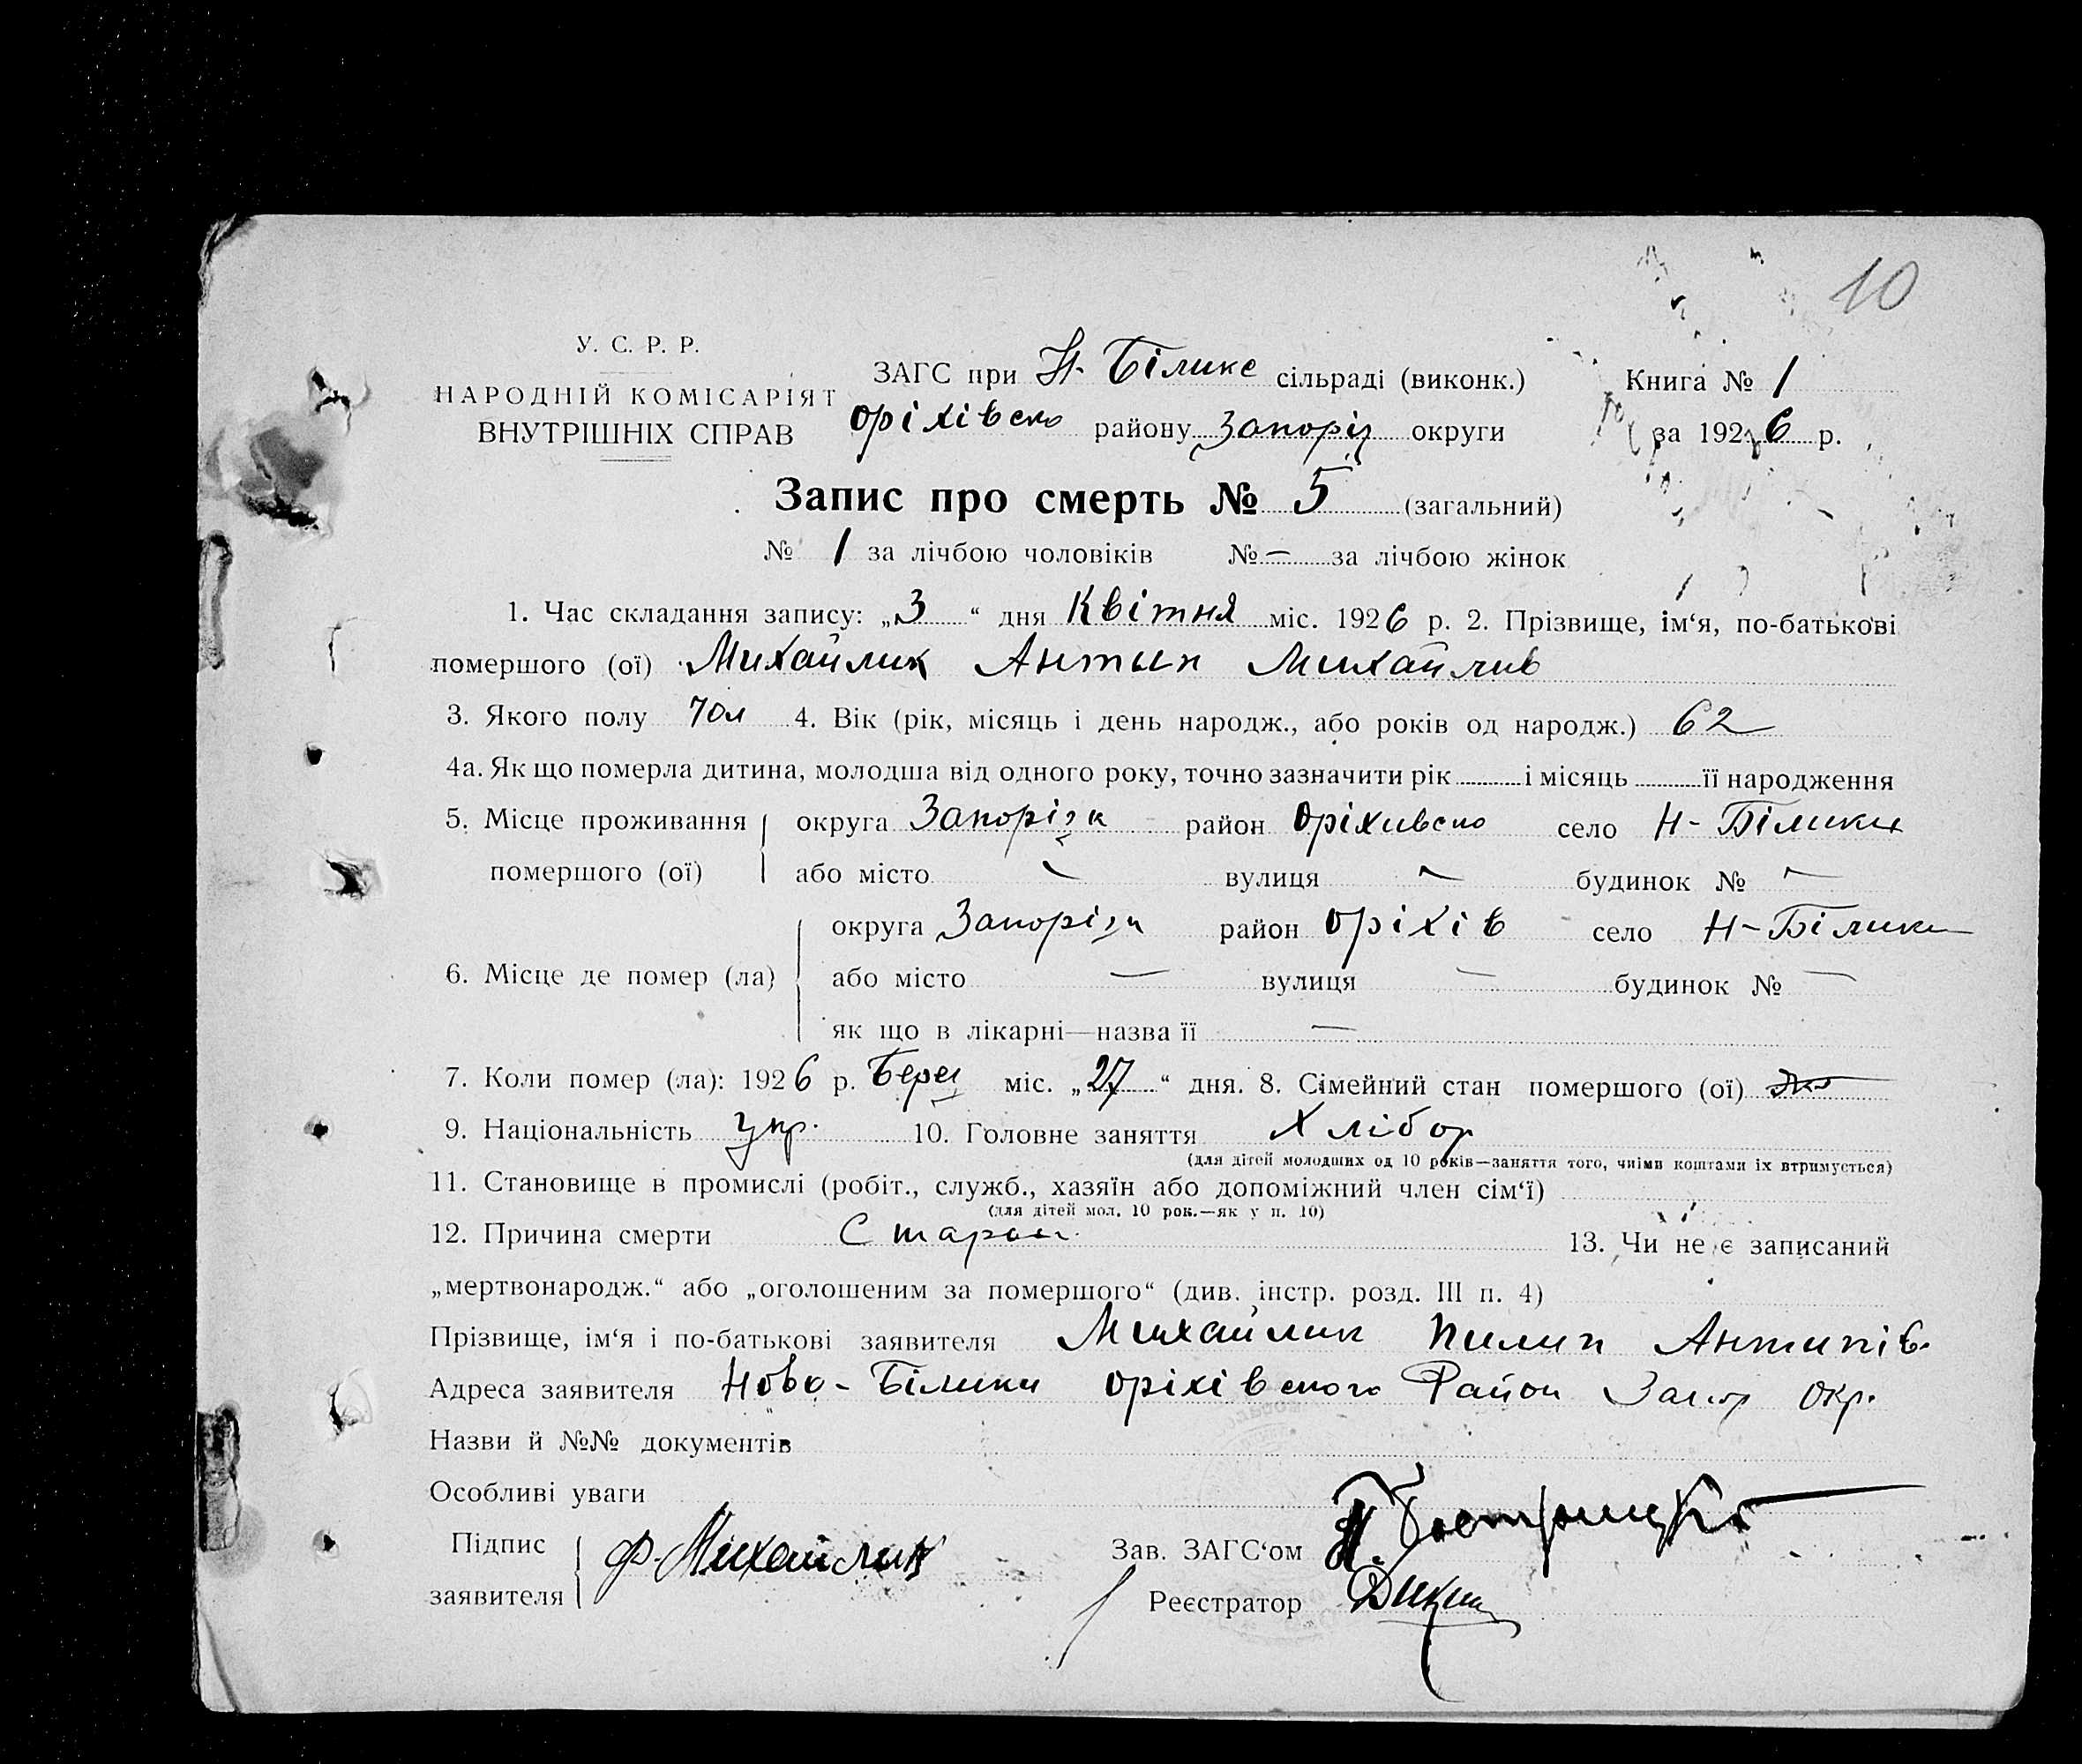 10
У. С. Р. Р.
НАРОДНІЙ КОМІСАРІЯТ
ВНУТРІШНІХ СПРАВ
ЗАГС при Н-Білике сільраді (виконк.)
Оріхівско району Запоріз округи
Книга № 1
за 1926 р.
Запис про смерть № 5 (загальний)
№ 1 за лічбою чоловіків № — за лічбою жінок
1. Час складання запису: „3“ дня Квітня міс. 1926 р. 2. Прізвище, ім‘я, по-батькові
помершого (ої) Михайлик Антип Михайлив
3. Якого полу 4. Вік (рік, місяць і день народж., або років од народж.) 62
4а. Як що померла дитина, молодша від одного року, точно зазначити рік і місяць її народження
5. Місце проживання округа Запорізк район Оріхивско село Н-Білики
помершого (ої) або місто — вулиця — будинок № —
округа Запорізк район Оріхів село Н-Білики
6. Місце де помер (ла) або місто — вулиця — будинок № —
як що в лікарні—назва її —
7. Коли помер (ла): 1926 р. Берез міс. „27“ дня. 8. Сімейний стан помершого (ої)
9. Національність Укр. 10. Головне заняття Хлібор
(для дітей молодших од 10 років—заняття того, чиїми коштами їх втримується)
11. Становище в промислі (робіт., служб., хазяїн або допоміжний член сім‘ї)
(для дітей мол. 10 рок.—як у п. 10)
12. Причина смерти Старос. 13. Чи не є записаний
„мертвонародж.“ або „оголошеним за помершого“ (див. інстр. розд. III п. 4)
Прізвище, ім‘я і по-батькові заявителя Михайлик Пилип Антипів.
Адреса заявителя Ново-Білики Оріхівского Район Запор Окр.
Назви й №№ документів
Особливі уваги
Підпис
заявителя Ф. Михайлик
Зав. ЗАГС‘ом
Реєстратор